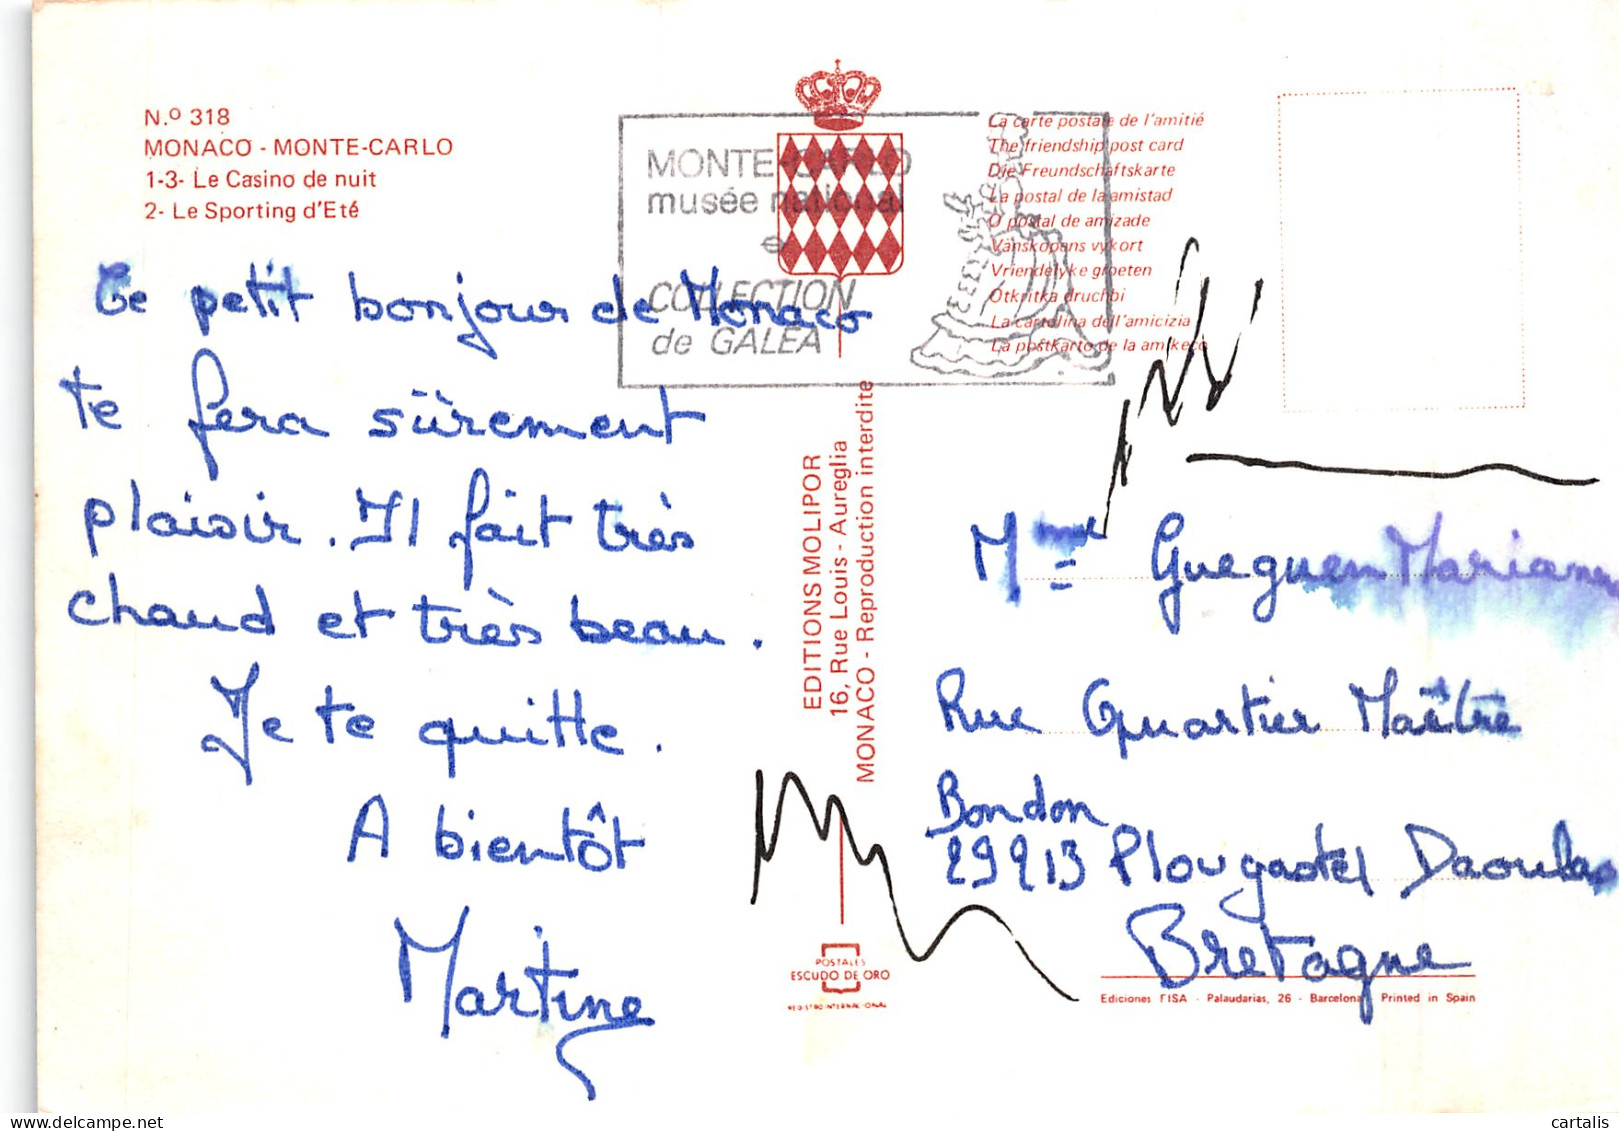 N.º 318
MONACO - MONTE-CARLO
1-3- Le Casino de nuit
2- Le Sporting d'Eté
MONTE-CARLO
musée national
COLLECTION
de GALEA
La carte postale de l'amitié
The friendship post card
Die Freundschaftskarte
La postal de la amistad
O postal de amizade
Vänskopans vykort
Vriendelyke groeten
Otkritka druchbi
La cartolina dell'amicizia
La postkarto de la amikeco
Ce petit bonjour de Monaco
te fera sûrement
plaisir. Il fait très
chaud et très beau.
Je te quitte.
A bientôt
Martine
EDITIONS MOLIPOR
16, Rue Louis - Aureglia
MONACO - Reproduction interdite
Mme Gueguen Marianne
Rue Quartier Maître
Bondon
29213 Plougastel Daoulas
Bretagne
POSTALES
ESCUDO DE ORO
REGISTRO INTERNACIONAL
Ediciones FISA - Palaudarias, 26 - Barcelona Printed in Spain
cartalis